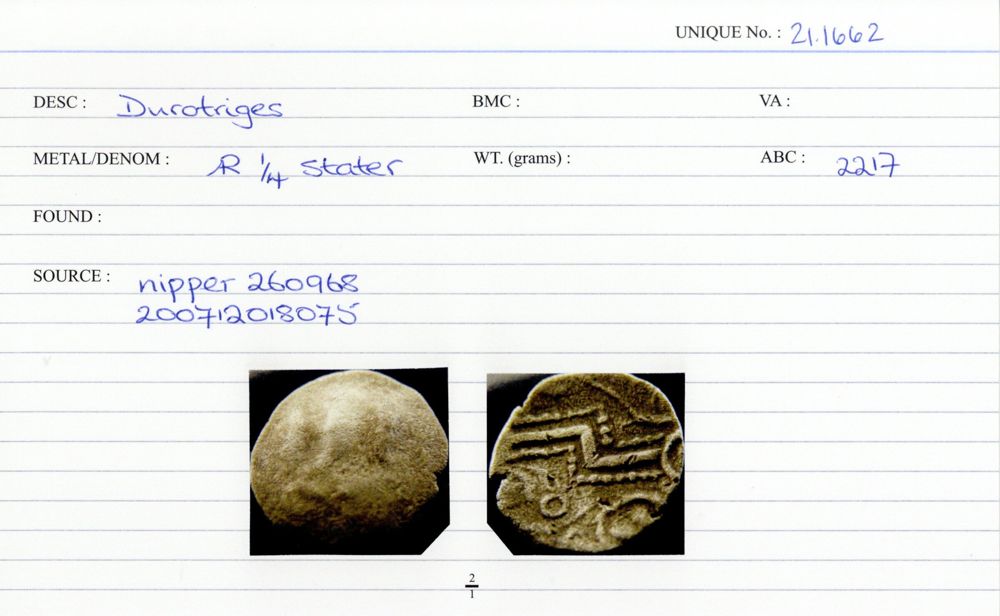 UNIQUE No. : 21.1662
DESC : Durotriges BMC : VA :
METAL/DENOM : AR 1/4 Stater WT. (grams) : ABC : 2217
FOUND :
SOURCE : nipper 260968
200712018075
2/1